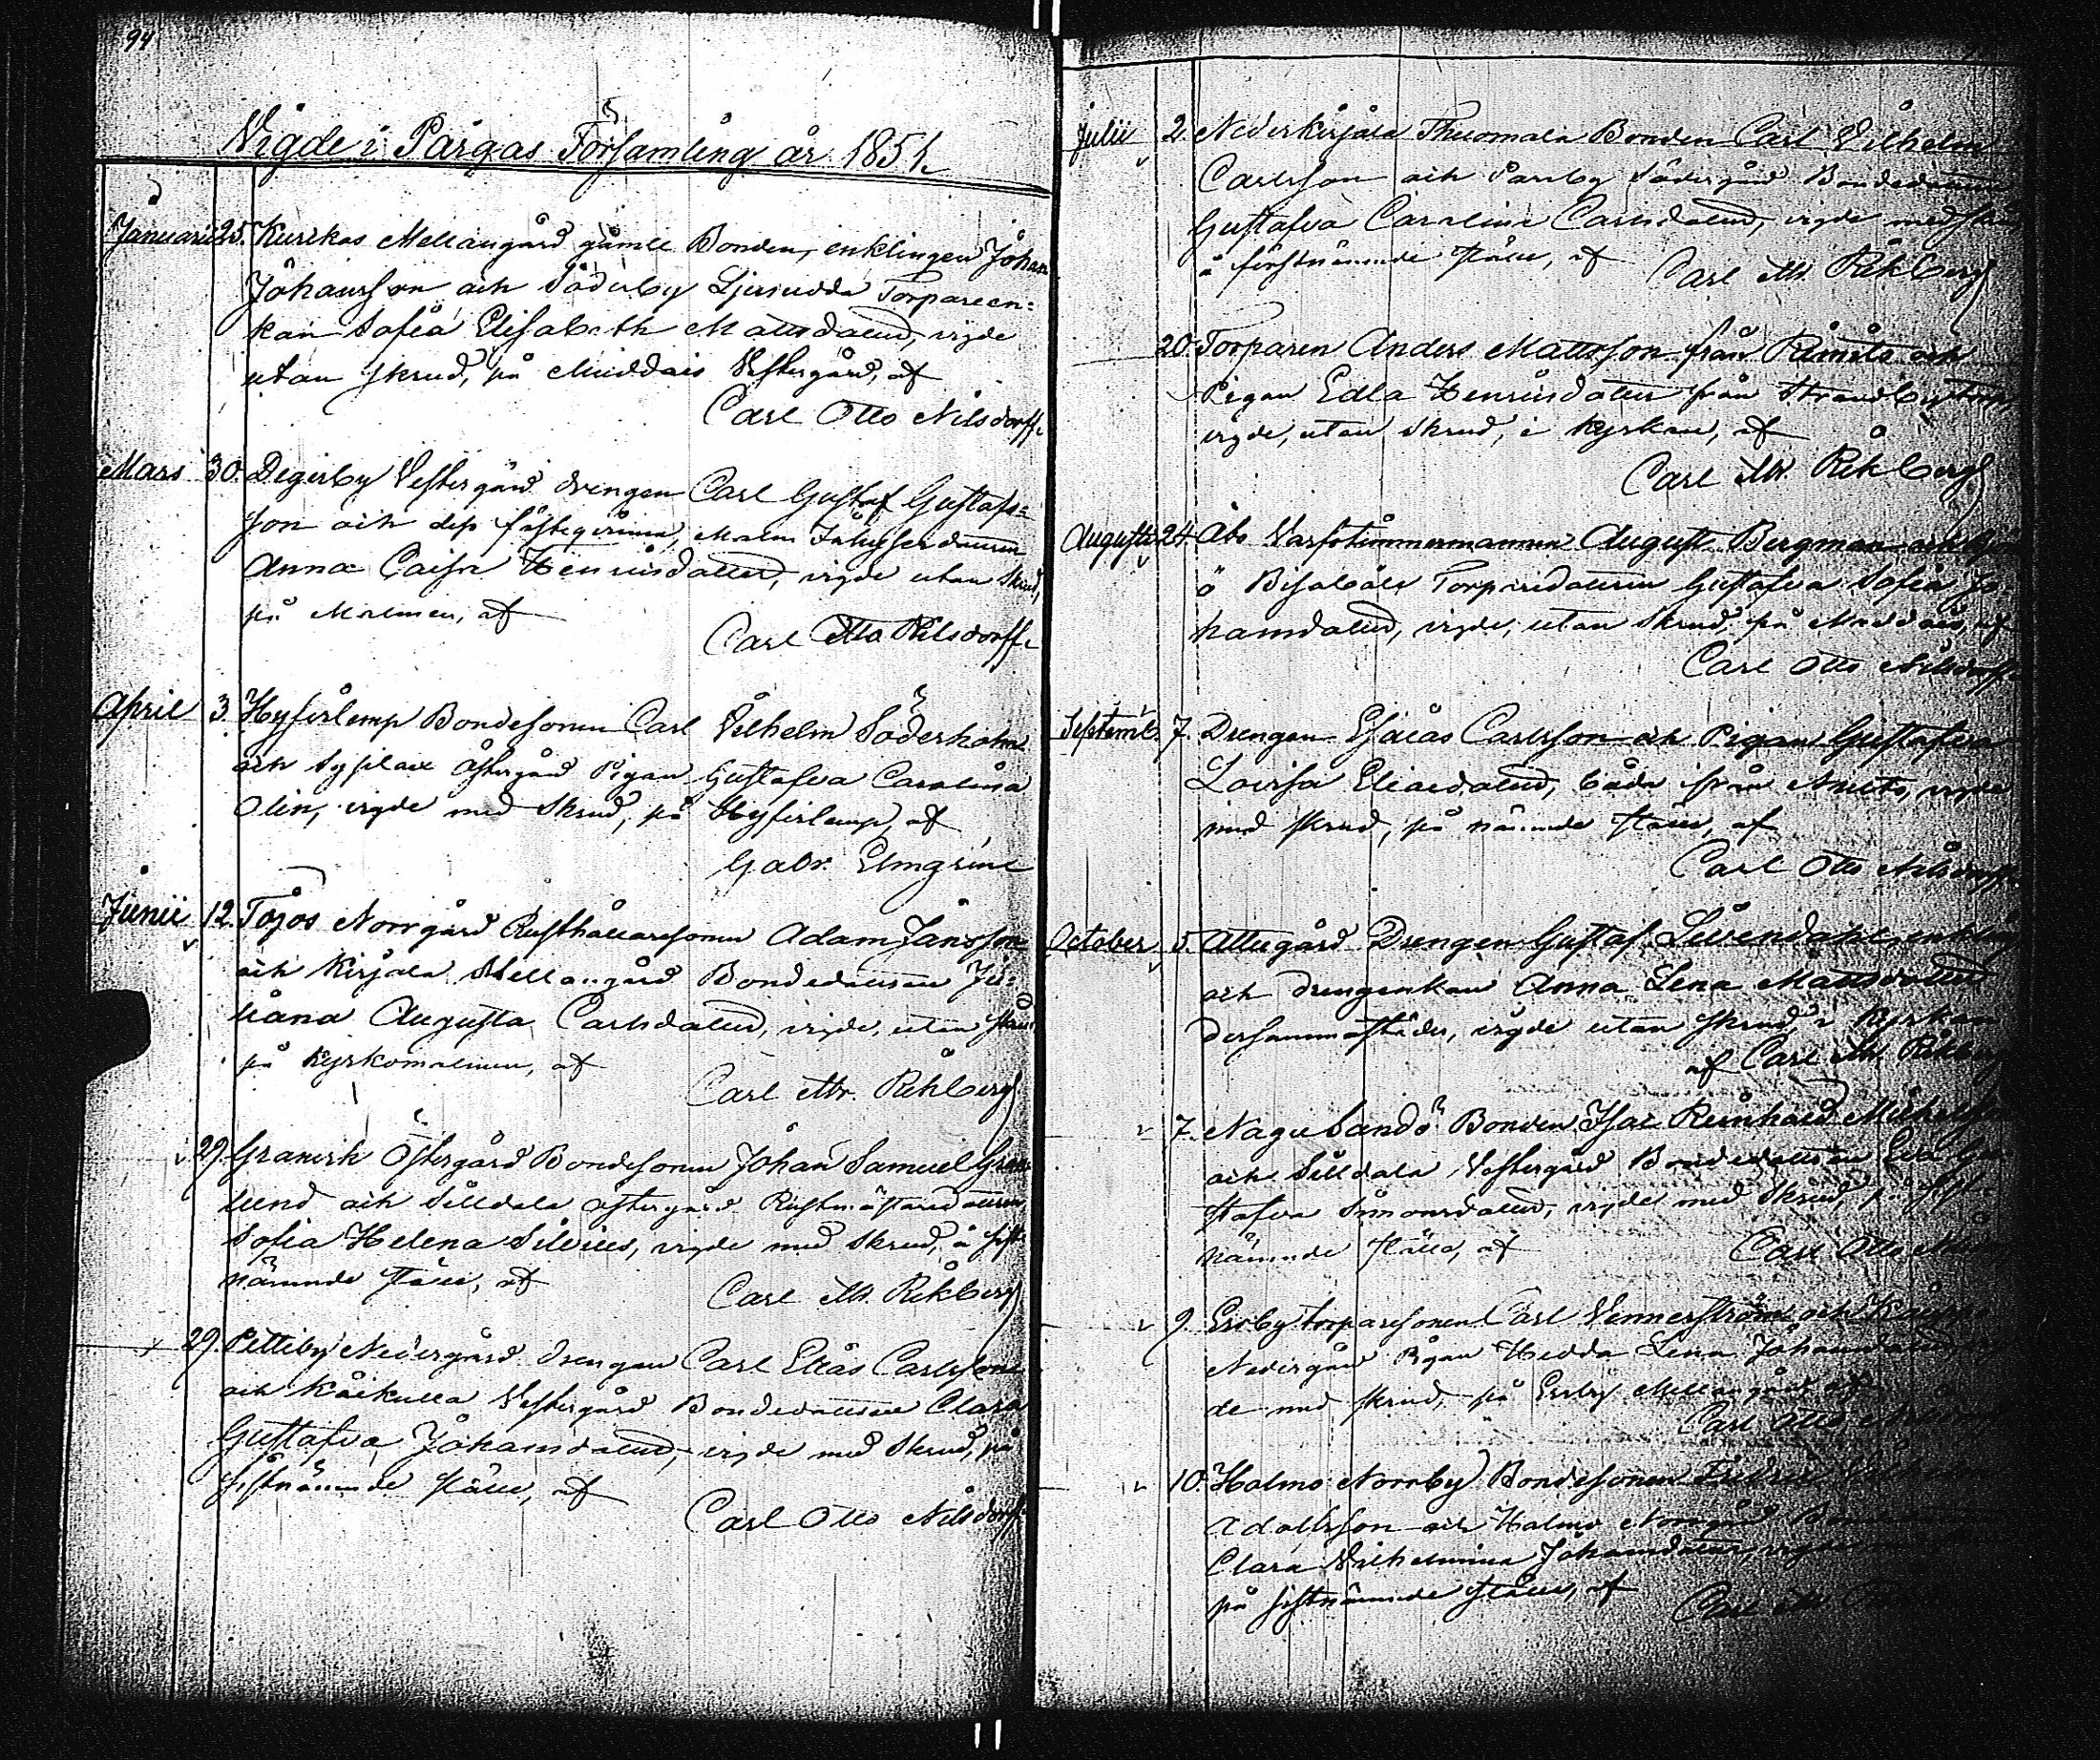 94
Vigde i Pargas Församling år 1851.
Januarii 25. Kurckas Mellangård gamle Bonden, enklingen Johan
Johansson och Söderby Ljusudda Torpareen-
kan Sofia Elisabeth Mattsdotter, vigde
utan skrud, på Muddais Vestergård, af
Carl Otto Nilsdorff.
Mars 30. Degerby Vestergård drengen Carl Gustaf Gustafs-
son och dess fästeqvinna, Malm
Anna Caisa Henricsdotter, vigde utan skrud,
på Malmen, af
Carl Otto Nilsdorff.
April 3. Hyfirlemp Bondesonen Carl Vilhelm Söderholm
och Sysilax Östergård Pigan Gustafva Carolina
Olin, vigde med skrud, på Hyfirlemp, af
Gabr. Elmgréné
Junii 12. Tojos Norrgård Rusthållaresonen Adam Jansson
och Kirjala Mellangård Bondedottren Ju-
liana Augusta Carlsdotter, vigde, utan skrud
på Kyrkomalmen, af
Carl Mr. Rehberg
29. Granvik Östergård Bondesonen Johan Samuel Gran-
lund och Silldala östergård Rustmästaredottren
Sofia Helena Silvius, vigde med skrud, å sist-
nämnde ställe, af
Carl M. Rehberg
29. Pettiby Nedergård drengen Carl Elias Carlsson
och Kåikulla Vestergård Bondedottren Clara
Gustafva Johansdotter, vigde med skrud, på
sistnämnde ställe, af
Carl Otto Nilsdorff.
Julii 2. Nederkirjala Thuomala Bonden Carl Vilhelm
Carlsson och Parsby Södergård Bondedottren
Gustafva Carolina Carlsdotter, vigde med skrud
å förstnämnde ställe, af
Carl M. Rehberg
20. Torparen Anders Mattsson från Rimito och
Pigan Edla Henricsdotter från Strandby torp,
vigde, utan skrud, i kyrkan, af
Carl M. Rehberg
Augusti 24. Åbo Varfstimmermannen August Bergman och
ö Bisabäle Torparedottren Gustafva Sofia Jo-
hansdotter, vigde, utan skrud, på Muddais, af
Carl Otto Nilsdorff.
Septemb. 7. Drengen Esaias Carlsson och Pigan Gustafva
Lovisa Eliaedotter, båda från Attuts, vigde
med skrud, på nämnde ställe, af
Carl Otto Nilsdorff.
October 5. Attugård Drengen Gustaf Levendahl, enkling
och drengenkan Anna Lena Mattsdotter
dersammastädes, vigde utan skrud, i kyrkan
af Carl M. Rehberg
7. Nagu Sandö Bonden Isac Reinhard Michelsson
och Silldala Vestergård Bondedottren Eva Gu-
stafva Simonsdotter, vigde med skrud, på sist-
nämnde ställe, af
Carl Otto
9. Ersby torparesonen Carl Vennerström och
Nedergård Pigan Hedda Lena Johansdotter, vig-
de med skrud, på Ersby Mellangård, af
Carl Otto
10. Holmo Norrby Bondesonen Fredric
Adolfsson och Holmo Norrgård
Clara Vilhelmina Johansdotter, vigde
på sistnämnde ställe, af
Carl M.